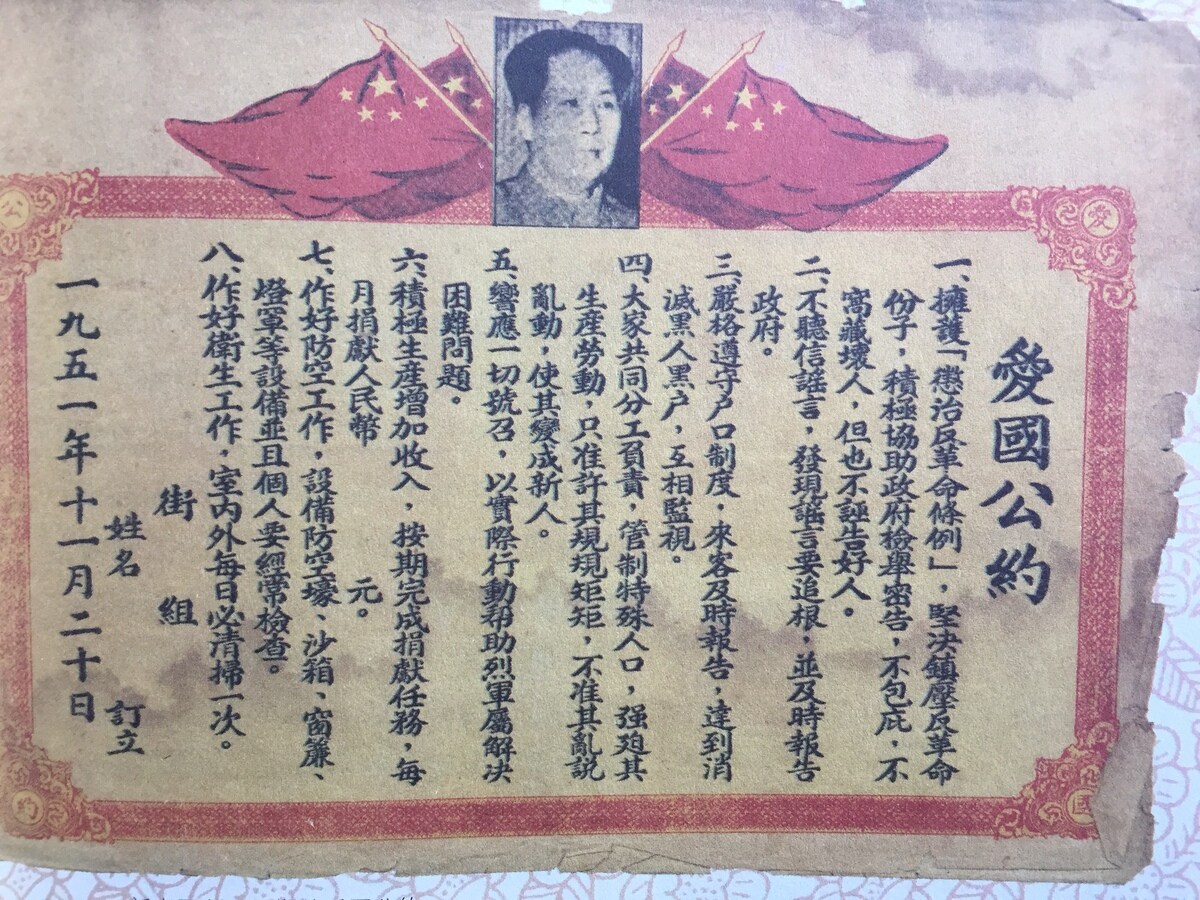 愛國公約
一、擁護「懲治反革命條例」，堅决鎮壓反革命
份子，積極協助政府檢舉密告，不包庇，不
窩藏壞人，但也不誣告好人。
二、不聽信謠言，發現謠言要追根，並及時報告
政府。
三、嚴格遵守户口制度，來客及時報告，達到消
滅黑人黑户，互相監視。
四、大家共同分工負責，管制特殊人口，强廹其
生産勞動，只准許其規規矩矩，不准其亂説
亂動，使其變成新人。
五、響應一切號召，以實際行動帮助烈軍屬解决
困難問題。
六、積極生産增加收入，按期完成捐獻任務，每
月捐獻人民幣 元。
七、作好防空工作，設備防空壕、沙箱、窗簾、
燈罩等設備並且個人要經常檢查。
八、作好衛生工作，室内外每日必清掃一次。
街 組
姓名 訂立
一九五一年十一月二十日
愛
國
公
約